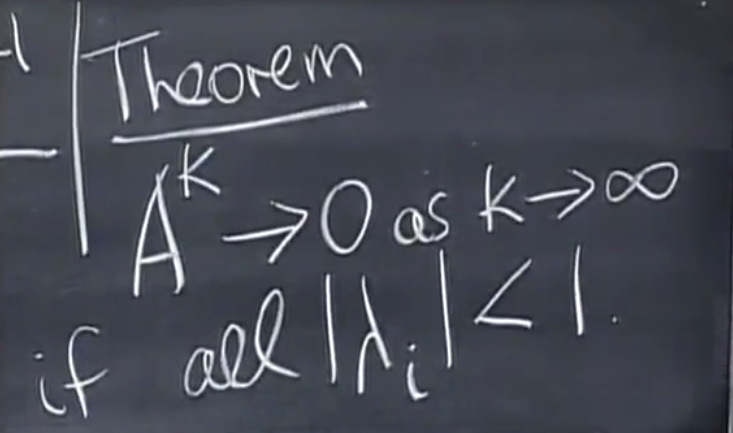 -1
Theorem
A^K → 0 as k → ∞
if all |λ_i| < 1.